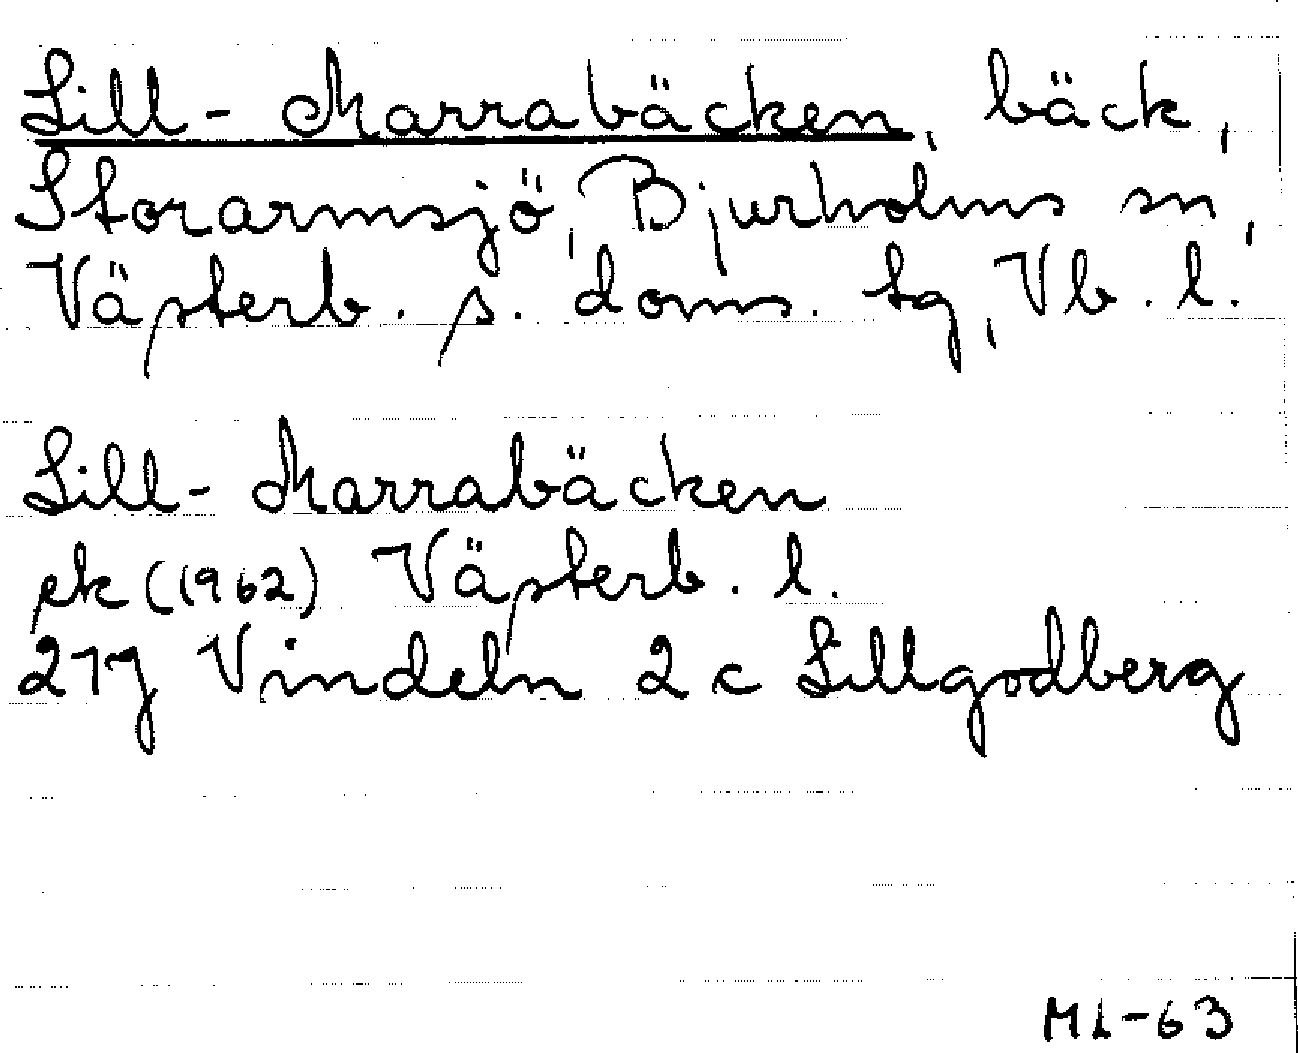 Lill-Marrabäcken, bäck,
Storarmsjö, Bjurholms sn,
Västerb. s. doms. tg, Vb. l.
Lill-Marrabäcken
ek (1962) Västerb. l.
21J Vindeln 2 c Lillgodberg
ML-63